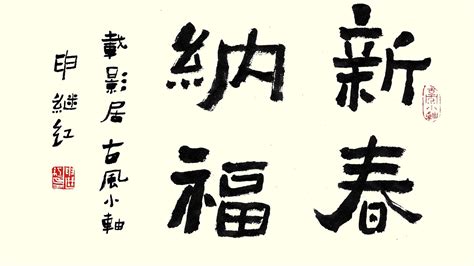 新春
納福
載影居古風小軸
申継红